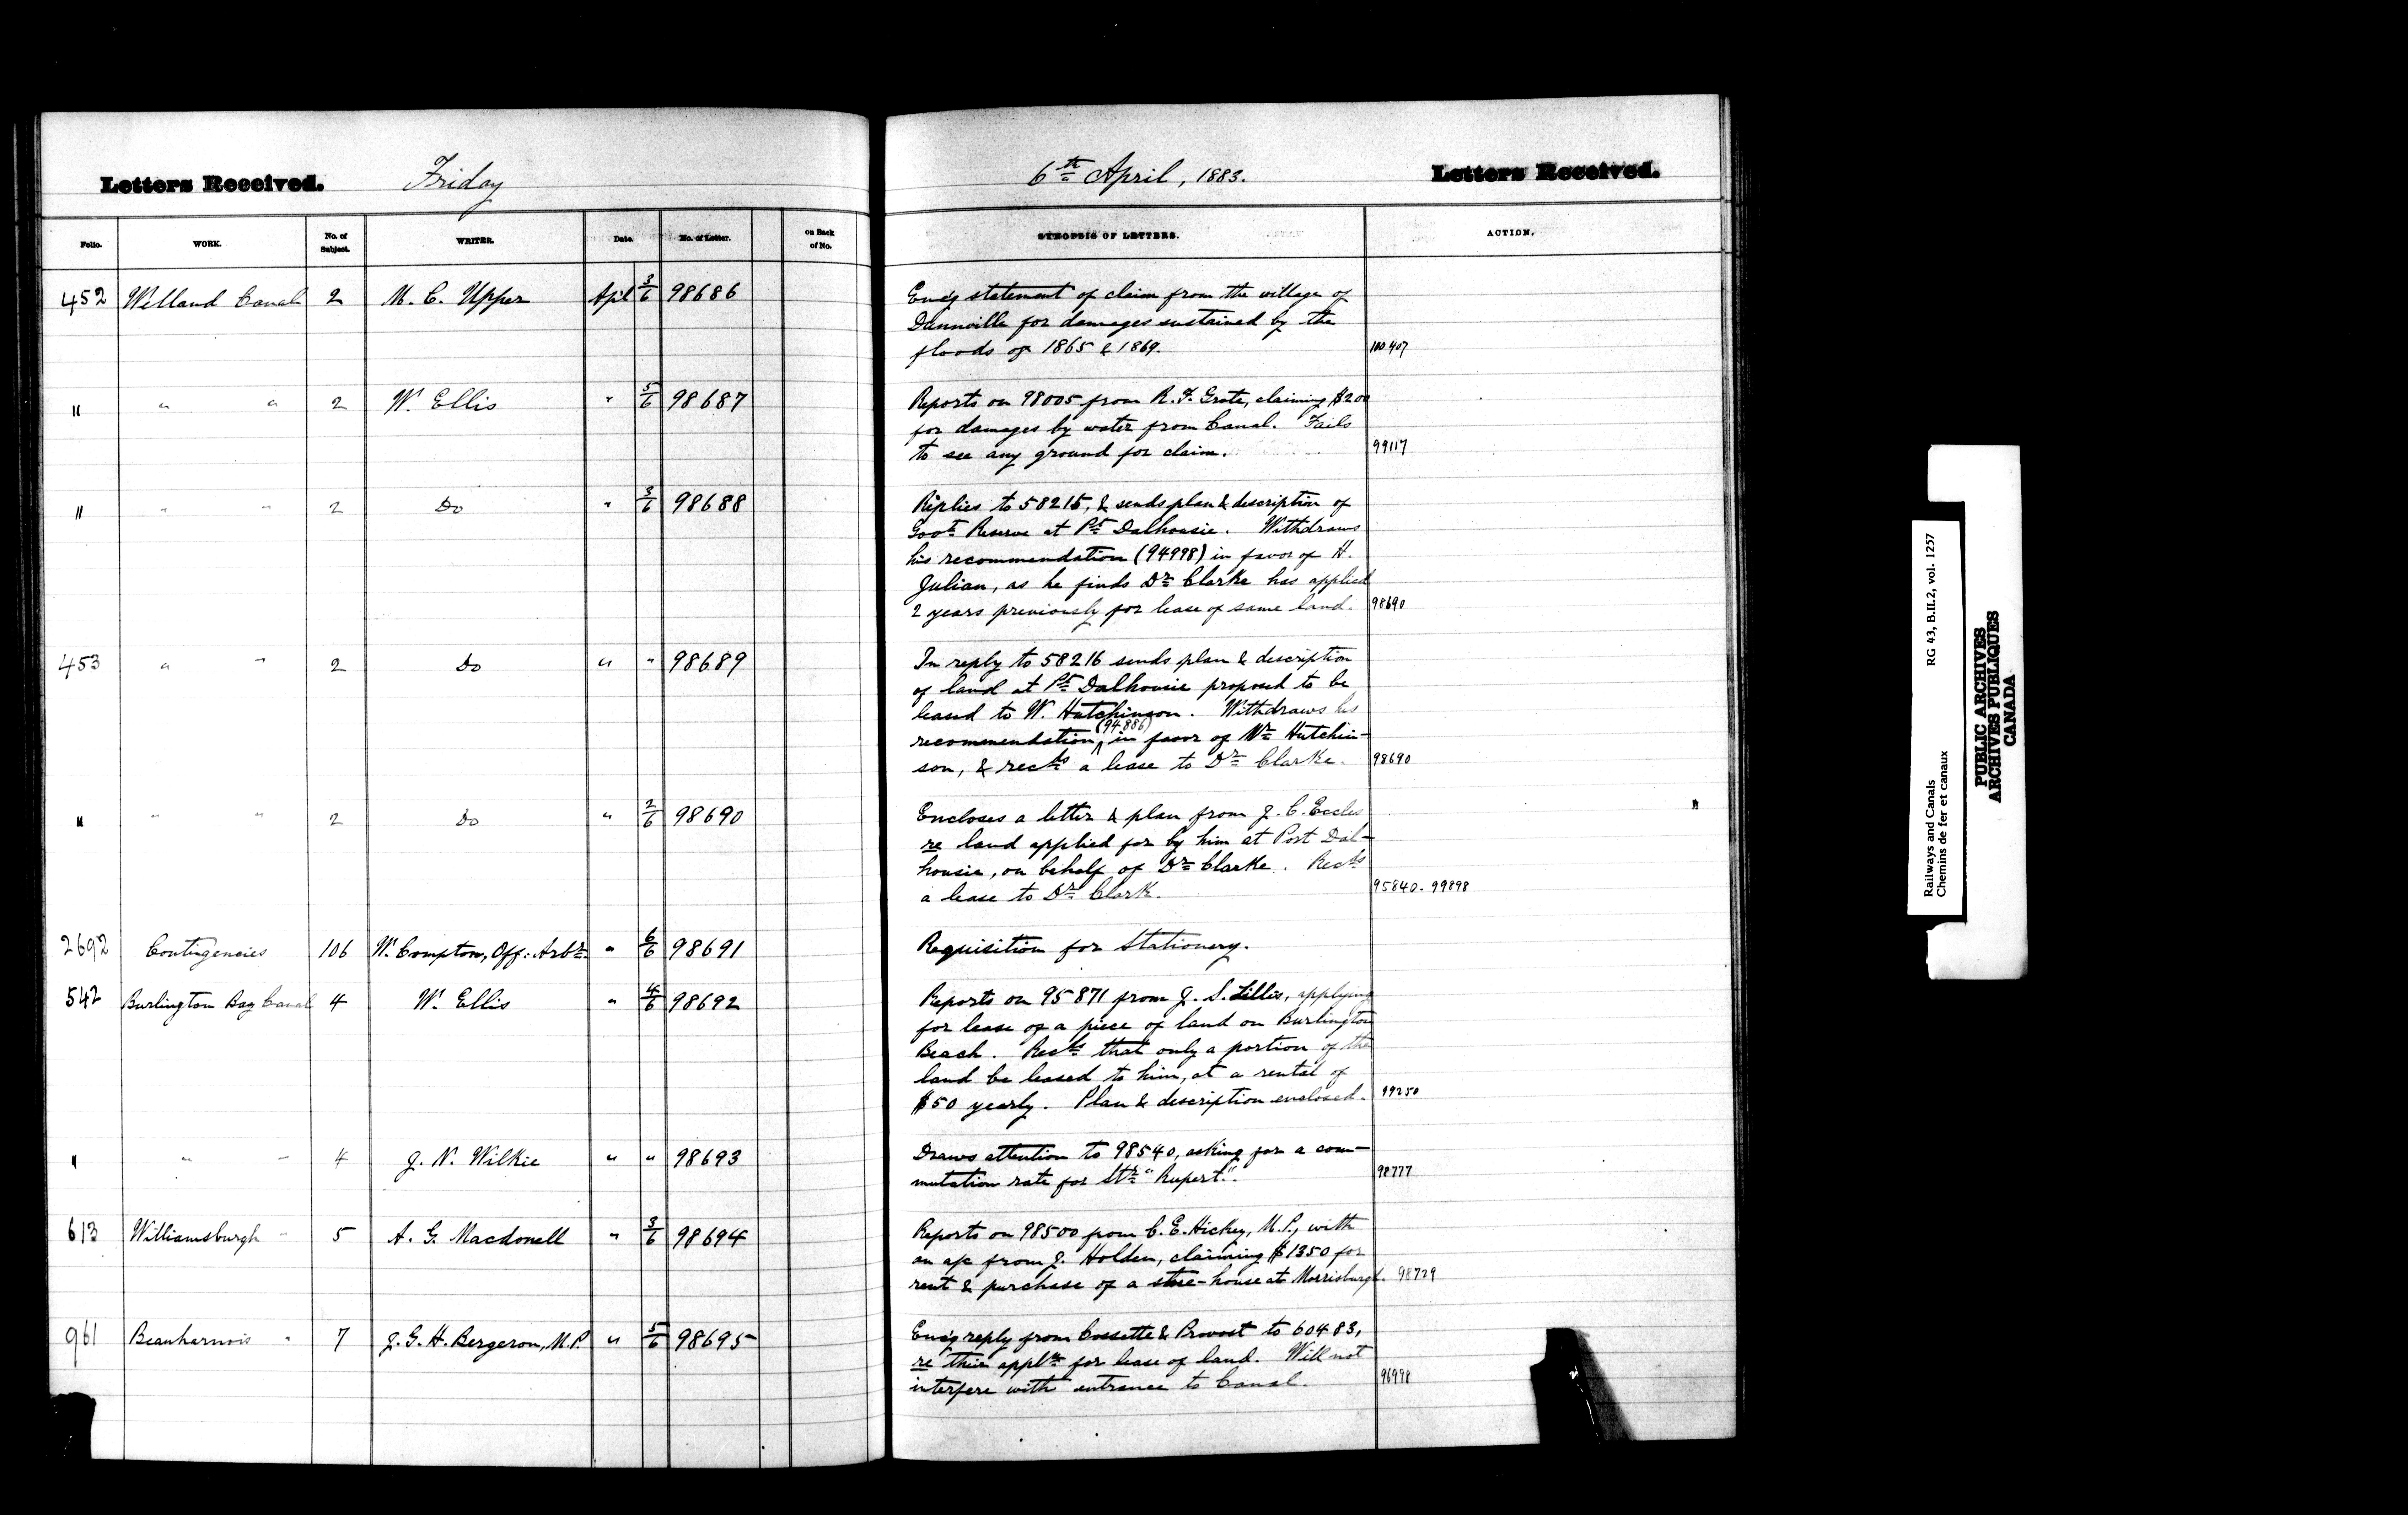 Letters Received. Friday
6th April, 1883. Letters Received.
Folio. WORK. No. of Subject. WRITER. Date. No. of Letter. on Back of No.
SYNOPSIS OF LETTERS. ACTION.
452 Welland Canal 2 M. C. Upper Apil 3/6 98686
Encg statement of claim from the village of
Dunnville for damages sustained by the
floods of 1865 & 1869. 100407
" " " 2 W. Ellis " 5/6 98687
Reports on 98005 from R. F. Grote, claiming $200
for damages by water from Canal. Fails
to see any ground for claim. 99117
" " " 2 Do " 3/6 98688
Replies to 58215, & sends plan & description of
Govt Reserve at Pt Dalhousie. Withdraws
his recommendation (94998) in favor of H.
Julian, as he finds Dr Clarke has applied
2 years previously for lease of same land. 98690
453 " " 2 Do " " 98689
In reply to 58216 sends plan & description
of land at Pt Dalhousie proposed to be
leased to W. Hutchinson. Withdraws his
recommendation (94886) in favor of Mr Hutchin-
son, & recds a lease to Dr Clarke. 98690
" " " 2 Do " 2/6 98690
Encloses a letter & plan from J. C. Eccles
re land applied for by him at Port Dal-
housie, on behalf of Dr Clarke. Recds
a lease to Dr Clark. 95840. 99898
2692 Contingencies 106 W. Compton, Off: Arbr " 6/6 98691
Requisition for Stationery.
542 Burlington Bay Canal 4 W. Ellis " 4/6 98692
Reports on 95871 from J. S. Lillis, applying
for lease of a piece of land on Burlington
Beach. Recds that only a portion of the
land be leased to him, at a rental of
$50 yearly. Plan & description enclosed. 99250
" " " 4 J. N. Wilkie " " 98693
Draws attention to 98540, asking for a com-
mutation rate for Str "Rupert". 98777
613 Williamsburgh " 5 A. G. Macdonell " 3/6 98694
Reports on 98500 from C. E. Hickey, M.P., with
an a/c from J. Holden, claiming $1350 for
rent & purchase of a store-house at Morrisburgh. 98729
961 Beauharnois " 7 J. G. H. Bergeron, M.P. " 5/6 98695
Encg reply from Cossette & Provost to 60483,
re their appln for lease of land. Will not
interfere with entrance to Canal. 96998
Railways and Canals RG 43, B.II.2, vol. 1257
Chemins de fer et canaux
PUBLIC ARCHIVES
ARCHIVES PUBLIQUES
CANADA